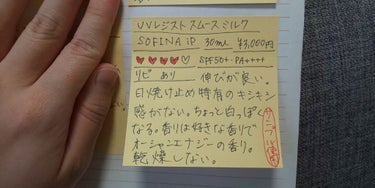 UVレジスト スムース ミルク
SOFINA iP 30ml ¥3,000円
♥♥♥♥♡ SPF50+・PA++++
リピ あり 伸びが良い。
日焼け止め特有のキシキシ
感がない。ちょっと白っぽく
なる。香りは好きな香りで
オーシャンエナジーの香り。
乾燥しない。